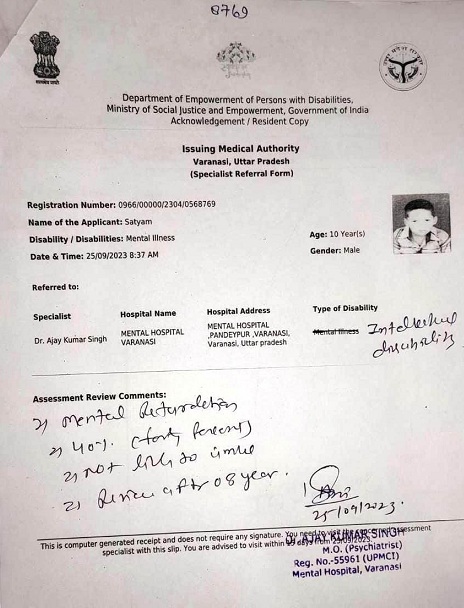 8769
सत्यमेव जयते
Department of Empowerment of Persons with Disabilities,
Ministry of Social Justice and Empowerment, Government of India
Acknowledgement / Resident Copy
Issuing Medical Authority
Varanasi, Uttar Pradesh
(Specialist Referral Form)
Registration Number: 0966/00000/2304/0568769
Name of the Applicant: Satyam
Disability / Disabilities: Mental Illness
Age: 10 Year(s)
Date & Time: 25/09/2023 8:37 AM
Gender: Male
Referred to:
Specialist Hospital Name Hospital Address Type of Disability
Dr. Ajay Kumar Singh MENTAL HOSPITAL VARANASI MENTAL HOSPITAL ,PANDEYPUR ,VARANASI, Varanasi, Uttar pradesh Mental Illness Intellectual disability
Assessment Review Comments:
Mental Retardation
40%. (forty Percent)
not likely to
Review after 08 year.
25/09/2023.
This is computer generated receipt and does not require any signature. You need to visit the concerned assessment
specialist with this slip. You are advised to visit within days from 25/09/2023.
Dr. AJAY KUMAR SINGH
M.O. (Psychiatrist)
Reg. No.-55961 (UPMCI)
Mental Hospital, Varanasi